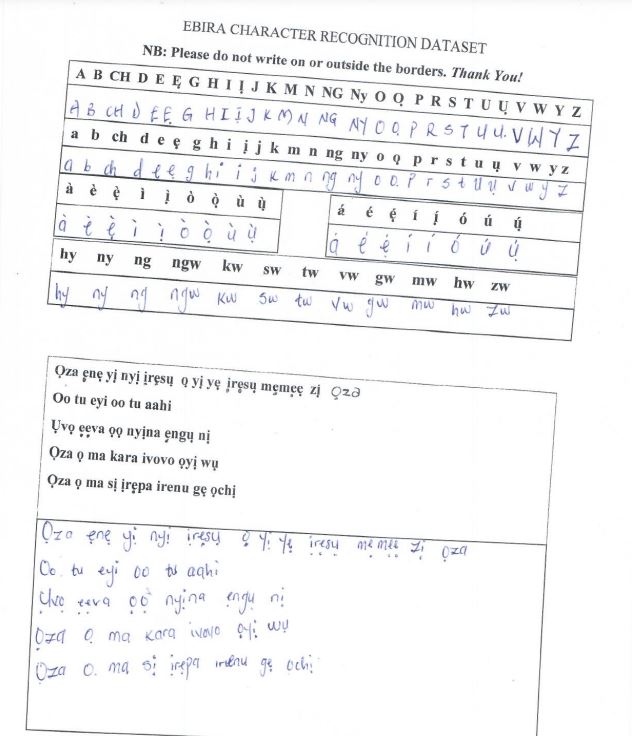 EBIRA CHARACTER RECOGNITION DATASET
NB: Please do not write on or outside the borders. Thank You!
A B CH D E Ẹ G H I Ị J K M N NG Ny O Ọ P R S T U Ụ V W Y Z
A B CH D E Ẹ G H I Ị J K M N NG NY O Ọ P R S T U Ụ V W Y Z
a b ch d e ẹ g h i ị j k m n ng ny o ọ p r s t u ụ v w y z
a b ch d e ẹ g h i ị j k m n ng ny o ọ p r s t u ụ v w y z
à è ẹ̀ ì ị̀ ò ọ̀ ù ụ̀
à è ẹ̀ ì ị̀ ò ọ̀ ù ụ̀
á é ẹ́ í ị́ ó ú ụ́
á é ẹ́ í í ó ú ụ́
hy ny ng ngw kw sw tw vw gw mw hw zw
hy ny ng ngw kw sw tw vw gw mw hw zw
Ọza ẹnẹ yị nyị ịrẹsụ ọ yị yẹ ịrẹsụ mẹmẹẹ zị Ọza
Oo tu eyi oo tu aahi
Ụvọ ẹẹva ọọ nyịna ẹngụ nị
Ọza ọ ma kara ivovo ọyị wụ
Ọza ọ ma sị ịrẹpa irenu gẹ ọchị
Ọza ẹnẹ yị nyị ịrẹsụ ọ yị yẹ ịrẹsụ mẹmẹẹ zị ọza
Oo tu eyi oo tu aahi
Ụvọ ẹẹva ọọ nyịna ẹngụ nị
Ọza ọ ma kara ivovo ọyị wụ
Ọza o. ma sị ịrẹpa irenu gẹ ochị